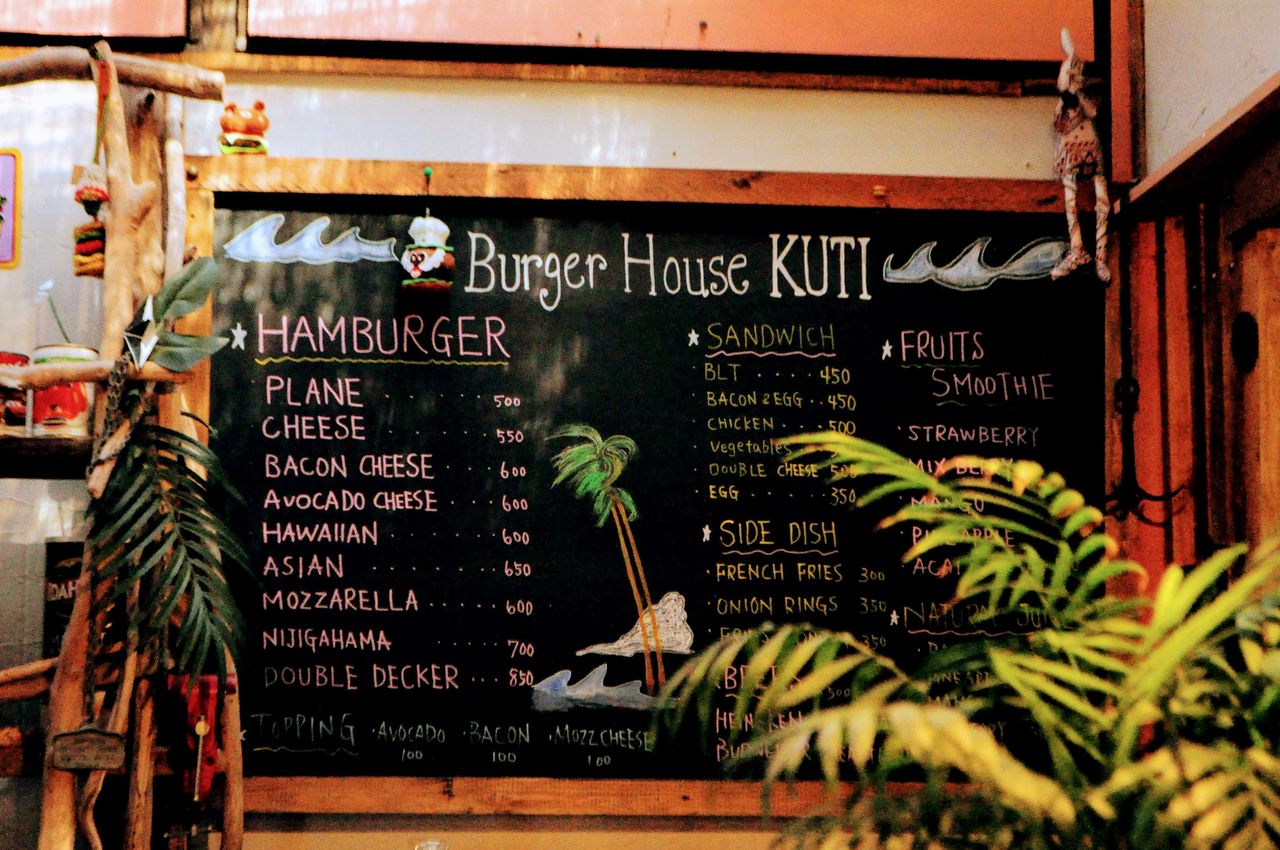 Burger House KUTI
HAMBURGER
PLANE 500
CHEESE 550
BACON CHEESE 600
AVOCADO CHEESE 600
HAWAIIAN 600
ASIAN 650
MOZZARELLA 600
NIJIGAHAMA 700
DOUBLE DECKER 850
TOPPING
AVOCADO 100
BACON 100
MOZZ CHEESE 100
SANDWICH
BLT 450
BACON & EGG 450
CHICKEN 500
Vegetables
DOUBLE CHEESE
EGG 350
SIDE DISH
FRENCH FRIES 300
ONION RINGS 350
350
500
FRUITS
SMOOTHIE
STRAWBERRY
MANGO
NATURAL